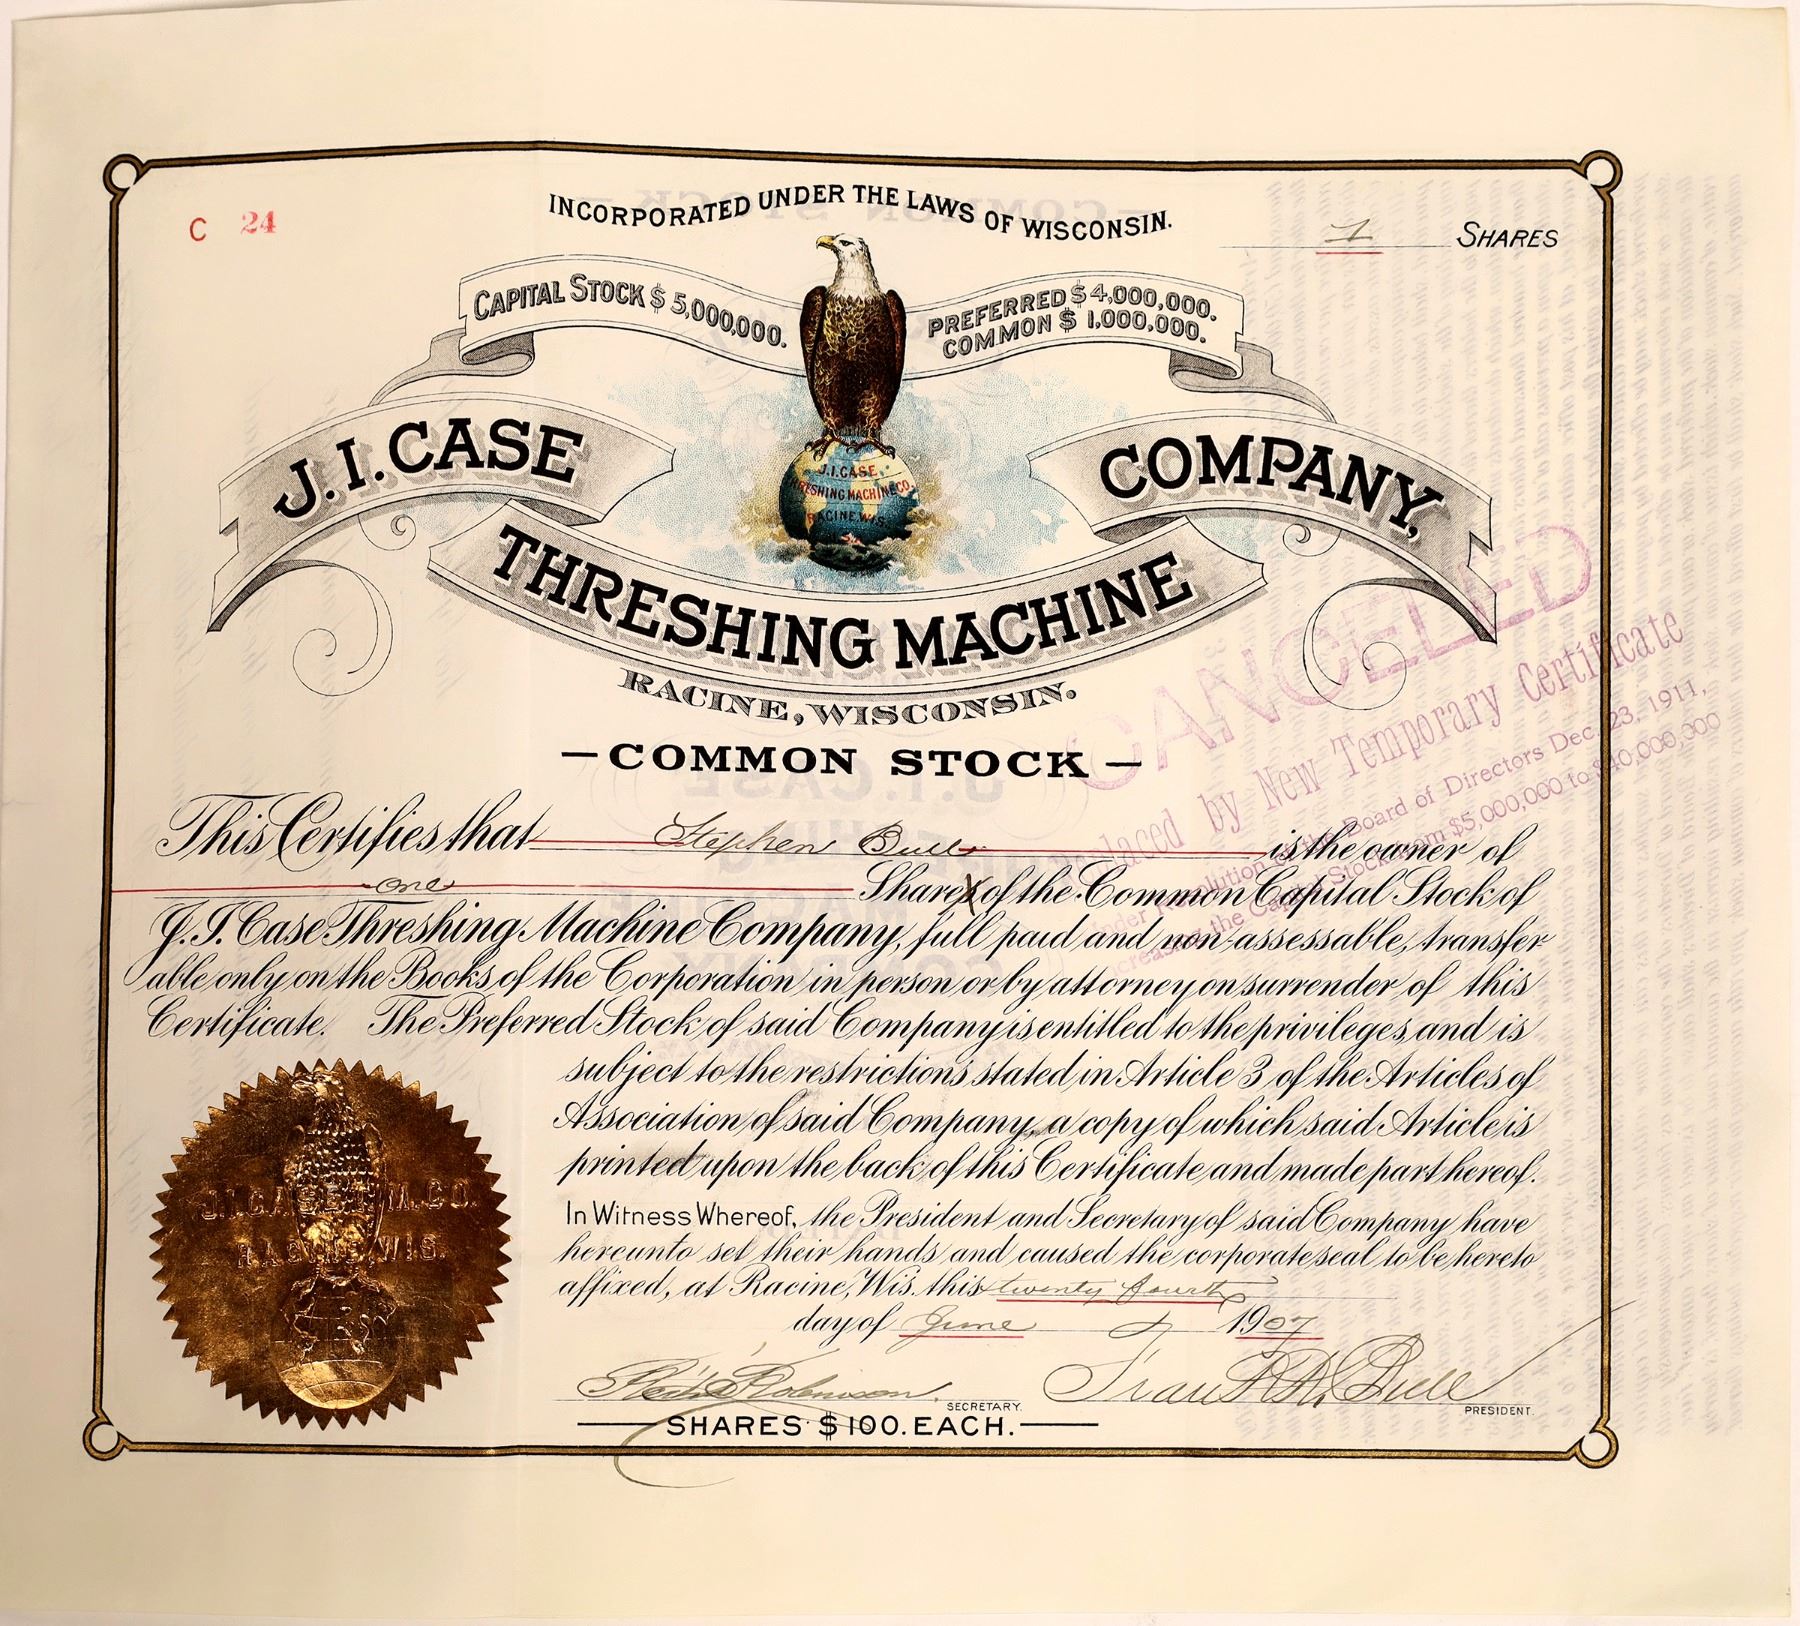 INCORPORATED UNDER THE LAWS OF WISCONSIN.
C 24
1 SHARES
CAPITAL STOCK $5,000,000.
PREFERRED $4,000,000.
COMMON $1,000,000.
J.I. CASE
THRESHING MACHINE
COMPANY,
J.I.CASE
THRESHING MACHINE CO.
RACINE, WIS.
RACINE, WISCONSIN.
—COMMON STOCK—
CANCELLED
Replaced by New Temporary Certificate
under Resolution of the Board of Directors Dec. 23, 1911,
increasing the Capital Stock from $5,000,000 to $40,000,000
This Certifies that Stephen Bull is the owner of
one Shares of the Common Capital Stock of
J.I. Case Threshing Machine Company, full paid and non-assessable, transfer
able only on the Books of the Corporation in person or by attorney on surrender of this
Certificate. The Preferred Stock of said Company is entitled to the privileges, and is
subject to the restrictions stated in Article 3 of the Articles of
Association of said Company, a copy of which said Article is
printed upon the back of this Certificate and made part hereof.
In Witness Whereof, the President and Secretary of said Company have
hereunto set their hands and caused the corporate seal to be hereto
affixed, at Racine, Wis. this twenty fourth
day of June 1907
J.I. CASE T. M. CO.
RACINE, WIS.
Robinson SECRETARY.
Frank K. Bull PRESIDENT.
SHARES $100. EACH.